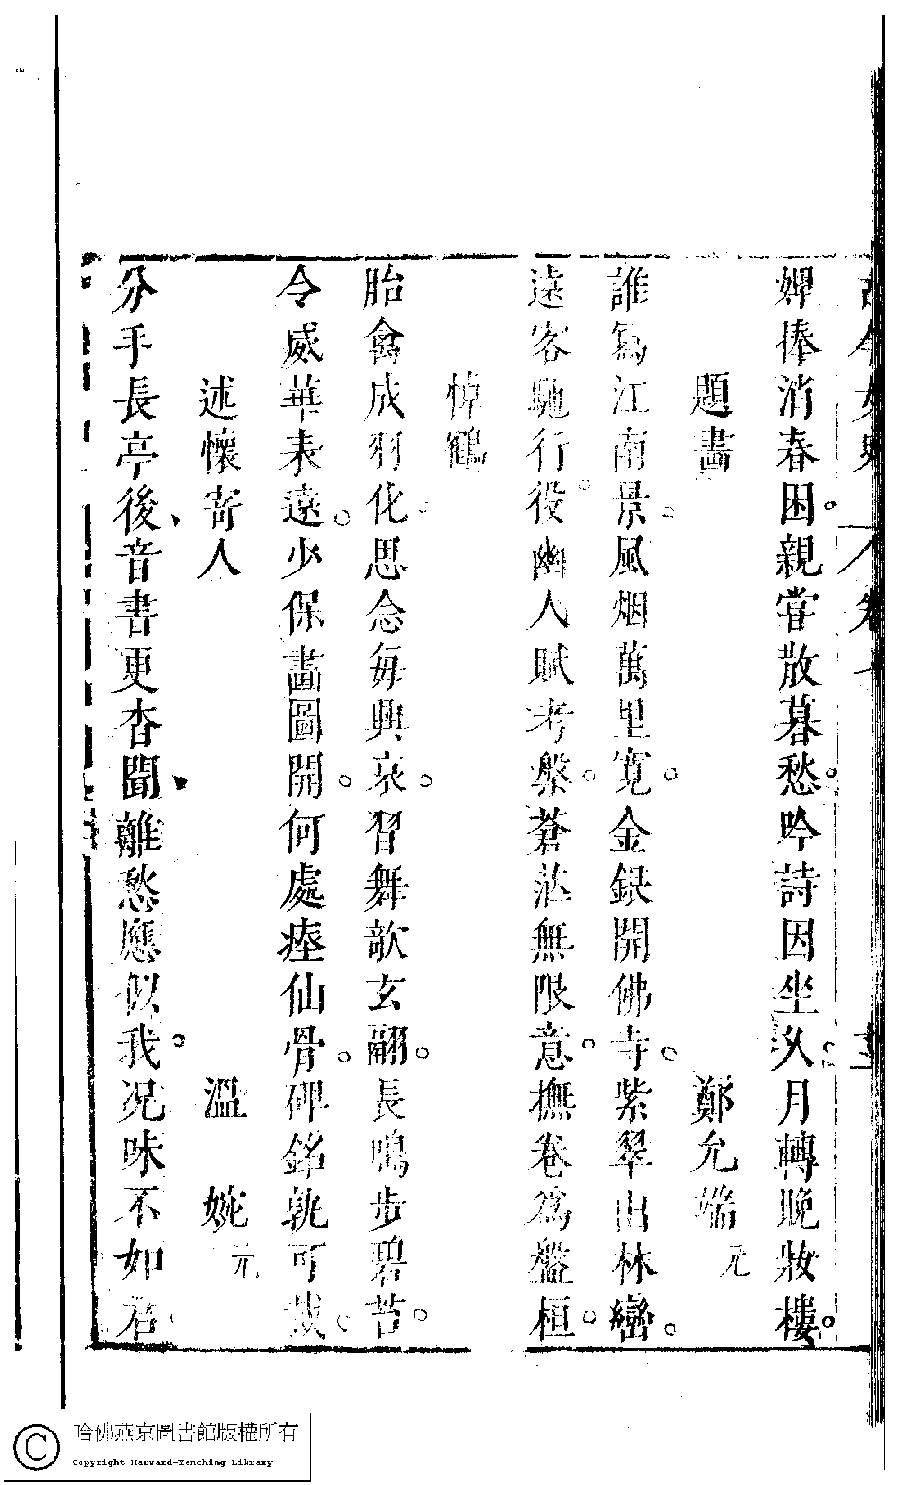 婢捧消春困。親嘗散暮愁。吟詩因坐久。月轉晩妝樓。
題畫　鄭允端元
誰寫江南景。風烟萬里寬。金銀開佛寺。紫翠出林巒。
遠客馳行役。幽人賦考槃。蒼茫無限意。撫卷爲盤桓。
悼鶴
胎禽成羽化。思念每興哀。習舞歌玄翮。長鳴步碧苔。
令威華表遠。少保畵圖開。何處瘞仙骨。碑銘孰可裁。
述懷寄人　溫婉元
分手長亭後、音書更杳聞、離愁應似我。况味不如君。
哈佛燕京圖書館版權所有
Copyright Harvard-Yenching Library